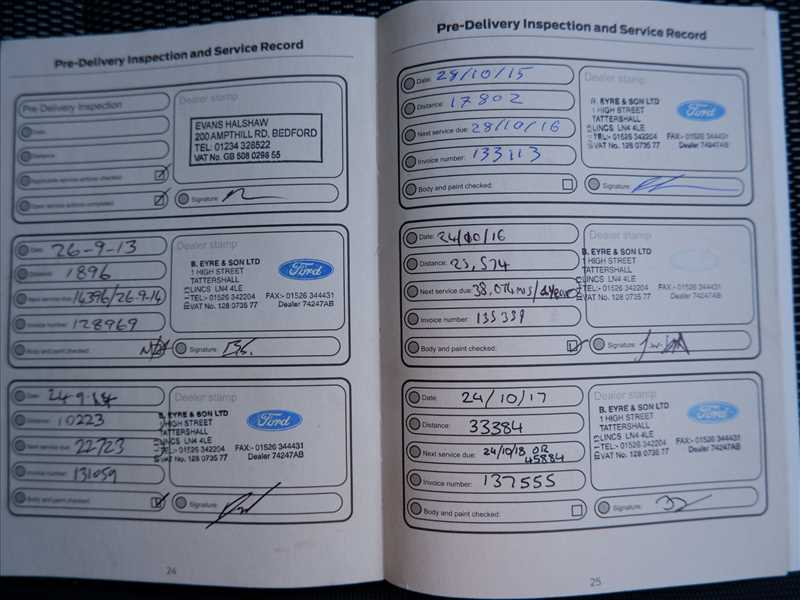 Pre-Delivery Inspection and Service Record
Pre-Delivery Inspection
Date:
Distance:
Applicable service actions checked:
Open service actions completed:
Dealer stamp
EVANS HALSHAW
200 AMPTHILL RD, BEDFORD
TEL: 01234 328522
VAT No. GB 508 0298 55
Signature:
Date: 26-9-13
Distance: 1896
Next service due: 14396/26-9-14
Invoice number: 128969
Body and paint checked:
Dealer stamp
B. EYRE & SON LTD
1 HIGH STREET
TATTERSHALL
LINCS LN4 4LE
TEL:- 01526 342204 FAX:- 01526 344431
VAT No. 128 0735 77 Dealer 74247AB
Ford
Signature:
Date: 24-9-14
Distance: 10223
Next service due: 22723
Invoice number: 131059
Body and paint checked:
Dealer stamp
B. EYRE & SON LTD
1 HIGH STREET
TATTERSHALL
LINCS LN4 4LE
TEL:- 01526 342204 FAX:- 01526 344431
VAT No. 128 0735 77 Dealer 74247AB
Ford
Signature:
24
Pre-Delivery Inspection and Service Record
Date: 28/10/15
Distance: 17802
Next service due: 28/10/16
Invoice number: 133113
Body and paint checked:
Dealer stamp
B. EYRE & SON LTD
1 HIGH STREET
TATTERSHALL
LINCS LN4 4LE
TEL:- 01526 342204 FAX:- 01526 344431
VAT No. 128 0735 77 Dealer 74247AB
Ford
Signature:
Date: 24/10/16
Distance: 25,574
Next service due:
Invoice number: 135339
Body and paint checked:
Dealer stamp
B. EYRE & SON LTD
1 HIGH STREET
TATTERSHALL
LINCS LN4 4LE
TEL:- 01526 342204 FAX:- 01526 344431
VAT No. 128 0735 77 Dealer 74247AB
Signature:
Date: 24/10/17
Distance: 33384
Next service due: 24/10/18 OR
45884
Invoice number: 137555
Body and paint checked:
Dealer stamp
B. EYRE & SON LTD
1 HIGH STREET
TATTERSHALL
LINCS LN4 4LE
TEL:- 01526 342204 FAX:- 01526 344431
VAT No. 128 0735 77 Dealer 74247AB
Ford
Signature:
25